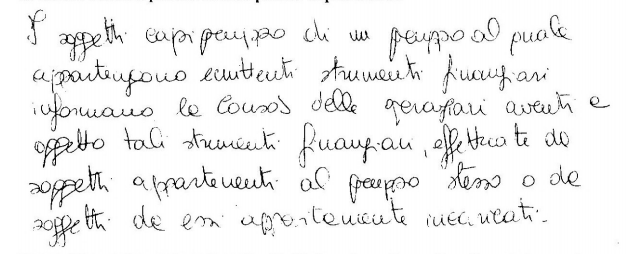 I soggetti capigruppo di un gruppo al quale
appartengono emittenti strumenti finanziari
informano la Consob delle operazioni aventi a
oggetto tali strumenti finanziari, effettuate da
soggetti appartenenti al gruppo stesso o da
soggetti da essi appositamente incaricati.